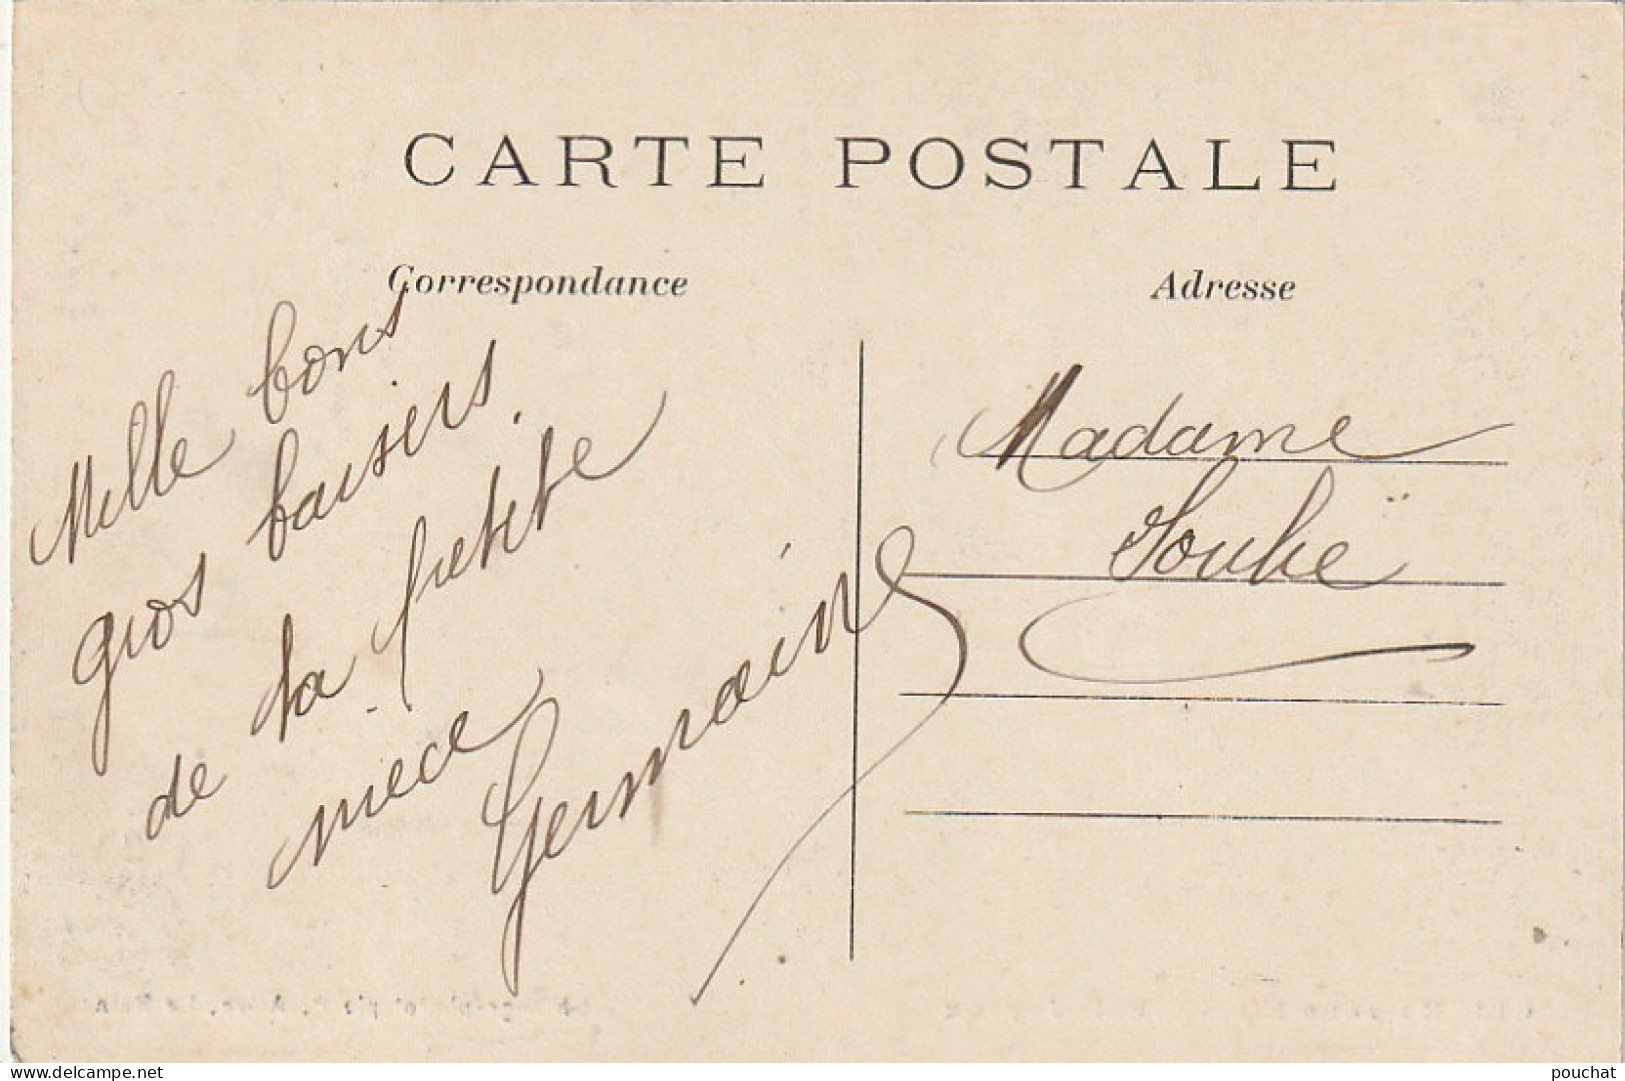 CARTE POSTALE
Correspondance
Mille bons
gros baisers.
de ta petite
niece
Germaine
Adresse
Madame
www.delcampe.net
pouchat